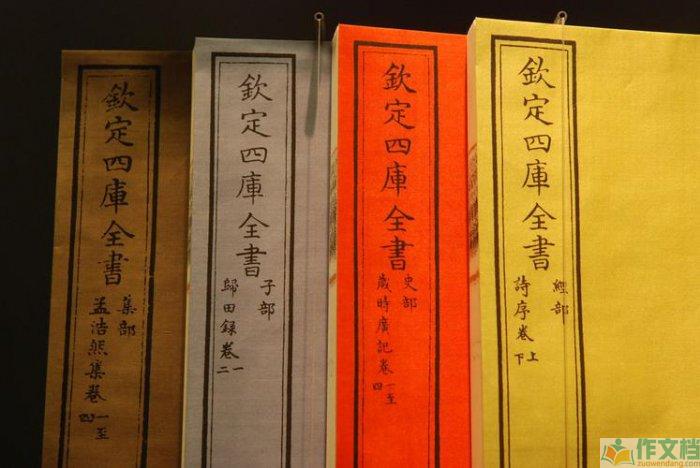 欽定四庫全書
經部
詩序卷上下
欽定四庫全書
史部
歲時廣記卷一至四
欽定四庫全書
子部
歸田録卷一二
欽定四庫全書
集部
孟浩然集卷一至四
作文档
zuowendang.com